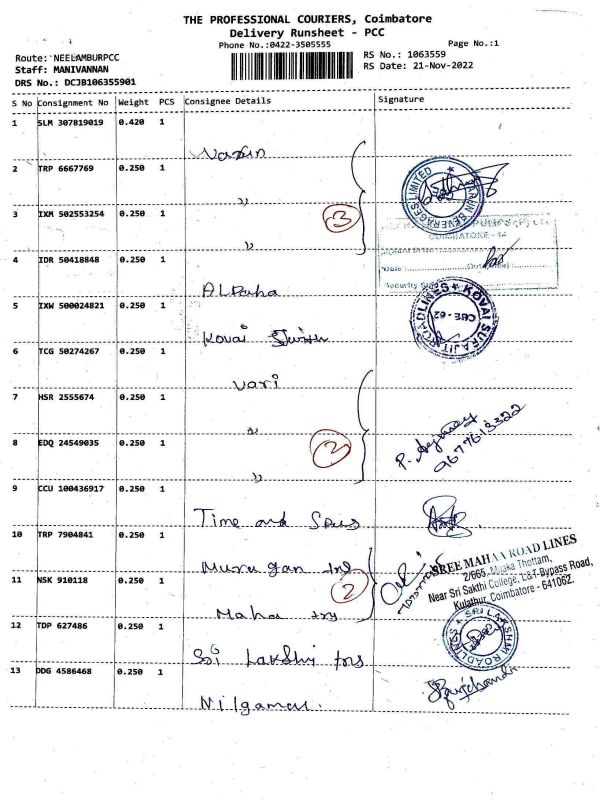 THE PROFESSIONAL COURIERS, Coimbatore
Delivery Runsheet - PCC
Phone No.:0422-3505555
Page No.:1
Route: NEELAMBURPCC
RS No.: 1063559
Staff: MANIVANNAN
RS Date: 21-Nov-2022
DRS No.: DCJB106355901
S No Consignment No Weight PCS Consignee Details Signature
1 SLM 307819019 0.420 1
2 TRP 6667769 0.250 1
3 IXM 502553254 0.250 1
3
4 IDR 50418848 0.250 1
5 IXW 500024821 0.250 1
Kovai
6 TCG 50274267 0.250 1
Vari
7 HSR 2555674 0.250 1
8 EDQ 24549035 0.250 1
9 CCU 100436917 0.250 1
Time and
10 TRP 7904841 0.250 1
Murugan
11 NSK 910118 0.250 1
2
Maha try
12 TDP 627486 0.250 1
Sri Lakshi trs
13 DDG 4586468 0.250 1
BEVERAGES LIMITED
COIMBATORE - 14
ROADLINES ★ KOVAI SURAJIT
CBE-62
9677613322
SREE MAHAA ROAD LINES
2/665, Mylaka Thottam,
Near Sri Sakthi College, L&T-Bypass Road,
Kulathur, Coimbatore - 641062.
SRI LAKSHMI ROADLINES